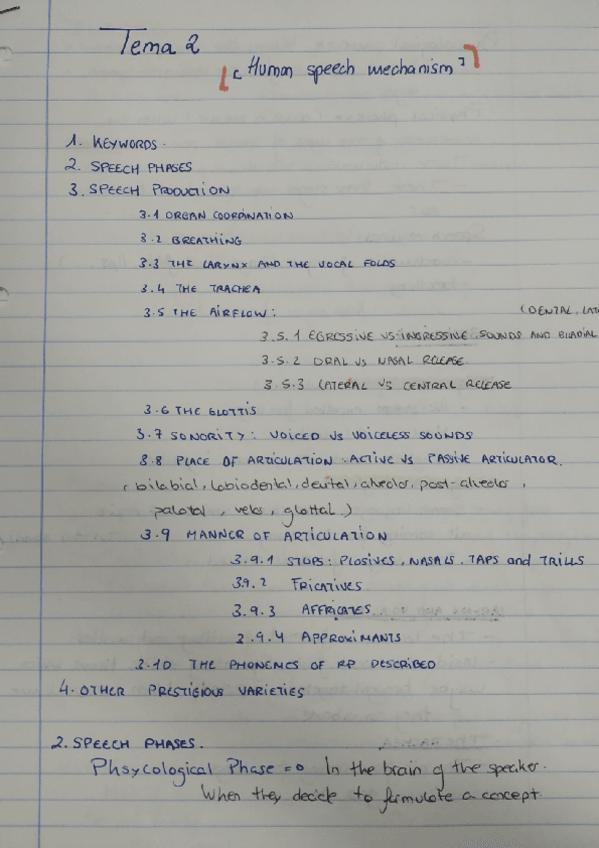 Tema 2
[ "Human speech mechanism" ]
1. KEYWORDS.
2. SPEECH PHASES
3. SPEECH PRODUCTION
3.1 ORGAN COORDINATION
3.2 BREATHING
3.3 THE LARYNX AND THE VOCAL FOLDS
3.4 THE TRACHEA
3.5 THE AIRFLOW: (DENTAL, LAT
3.5.1 EGRESSIVE VS INGRESSIVE SOUNDS AND BILABIAL
3.5.2 ORAL VS NASAL RELEASE
3.5.3 LATERAL VS CENTRAL RELEASE
3.6 THE GLOTTIS
3.7 SONORITY: VOICED VS VOICELESS SOUNDS
3.8 PLACE OF ARTICULATION: ACTIVE VS PASSIVE ARTICULATOR.
(bilabial, labiodental, dental, alveolar, post-alveolar,
palatal, velar, glottal.)
3.9 MANNER OF ARTICULATION
3.9.1 STOPS: PLOSIVES, NASALS, TAPS and TRILLS
3.9.2 FRICATIVES
3.9.3 AFFRICATES
3.9.4 APPROXIMANTS
3.10 THE PHONEMES OF RP DESCRIBED
4. OTHER PRESTIGIOUS VARIETIES
2. SPEECH PHASES.
Phsycological Phase => In the brain of the speaker.
When they decide to formulate a concept